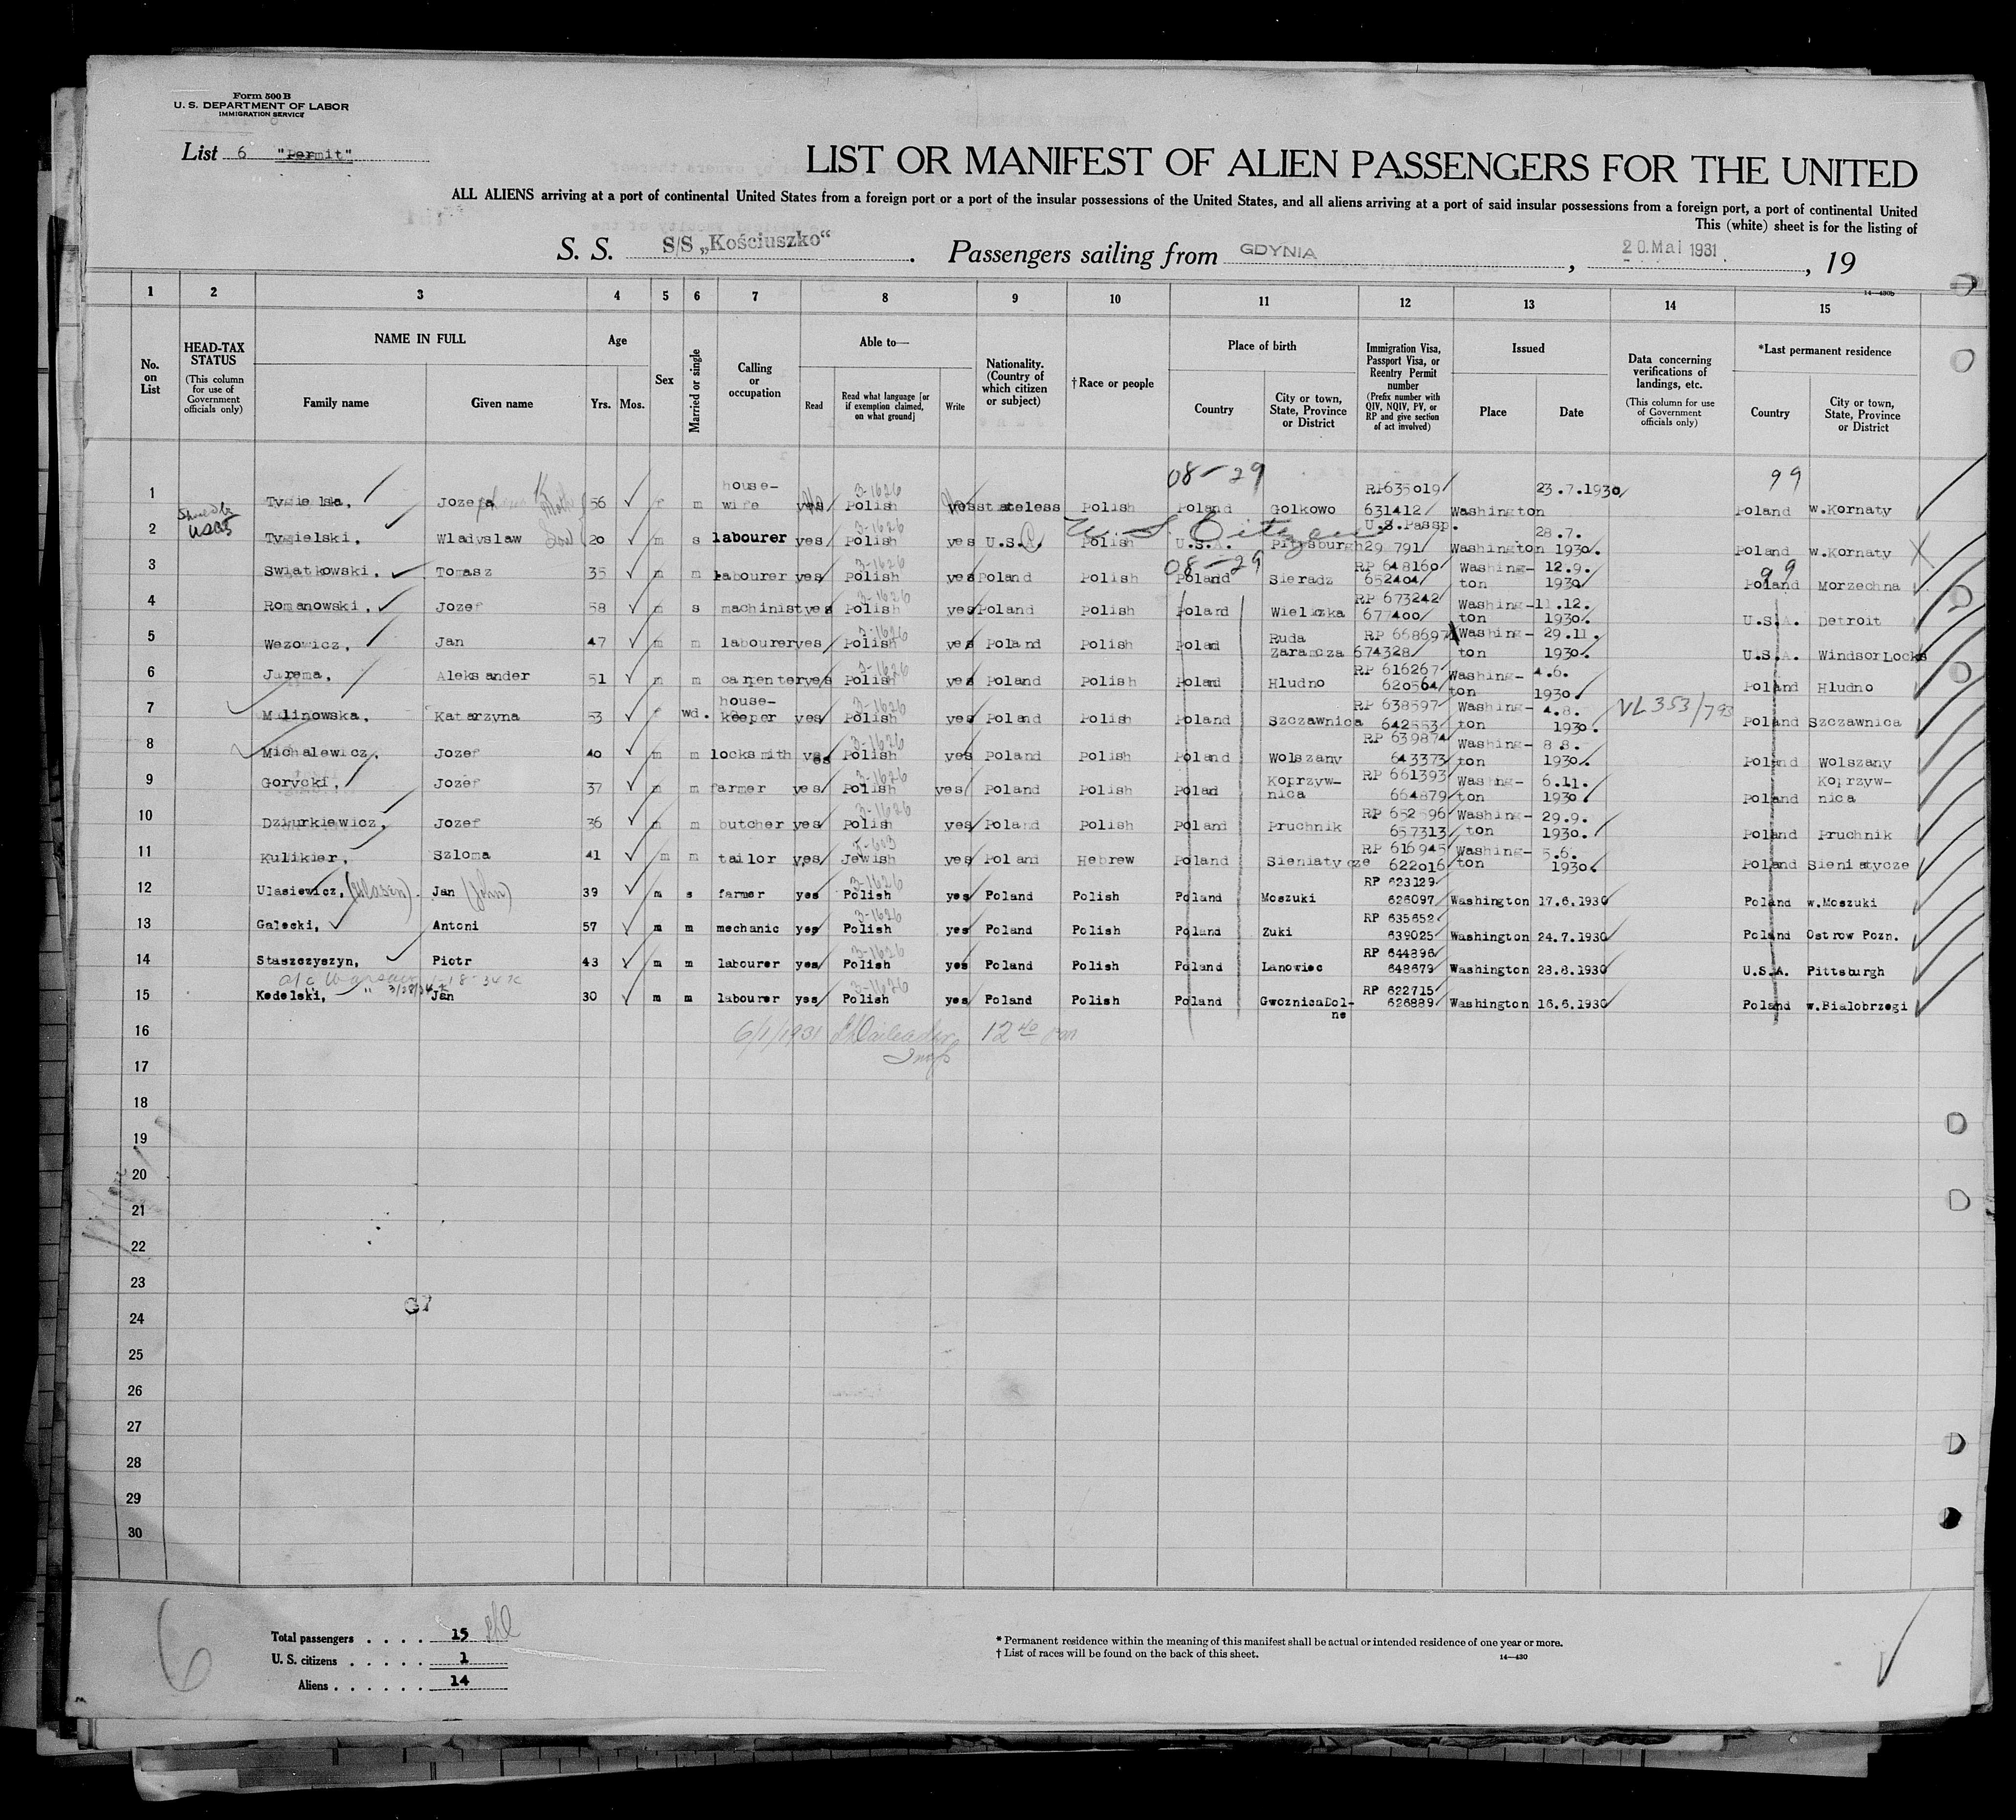 Form 500 B
U. S. DEPARTMENT OF LABOR
IMMIGRATION SERVICE
List 6 "Permit"
LIST OR MANIFEST OF ALIEN PASSENGERS FOR THE UNITED
ALL ALIENS arriving at a port of continental United States from a foreign port or a port of the insular possessions of the United States, and all aliens arriving at a port of said insular possessions from a foreign port, a port of continental United
This (white) sheet is for the listing of
S. S. S/S „Kościuszko“ . Passengers sailing from GDYNIA , 20.Mai 1931 , 19
14—430b
1 2 3 4 5 6 7 8 9 10 11 12 13 14 15
No. on List
HEAD-TAX STATUS
(This column for use of Government officials only)
NAME IN FULL
Family name Given name
Age
Yrs. Mos.
Sex
Married or single
Calling or occupation
Able to—
Read
Read what language [or if exemption claimed, on what ground]
Write
Nationality. (Country of which citizen or subject)
†Race or people
Place of birth
Country
City or town, State, Province or District
Immigration Visa, Passport Visa, or Reentry Permit number
(Prefix number with QIV, NQIV, PV, or RP and give section of act involved)
Issued
Place Date
Data concerning verifications of landings, etc.
(This column for use of Government officials only)
*Last permanent residence
Country
City or town, State, Province or District
08-29 99
1 Tygielska, Jozefa 56 f m house-wife yes No 3-1626 Polish yes No stateless Polish Poland Golkowo RP635019 631412 Washington 23.7.1930 Poland w.Kornaty
USC
2 Tygielski, Wladyslaw 20 m s labourer yes 3-1626 Polish yes U.S.A. Polish U.S. Citizen U.S.A. Pittsburgh U.S.Passp. 29 791 Washington 28.7.1930. Poland w.Kornaty X
08-29 99
3 Swiatkowski, Tomasz 35 m m labourer yes 3-1626 Polish yes Poland Polish Poland Sieradz RP 648160 652404 Washing-ton 12.9.1930 Poland Morzechna
4 Romanowski, Jozef 58 m s machinist yes 3-1626 Polish yes Poland Polish Poland Wieliczka RP 673242 677400 Washing-ton 11.12.1930. U.S.A. Detroit
5 Wazowicz, Jan 47 m m labourer yes 3-1626 Polish yes Poland Polish Polad Ruda Zaramcza RP 668697 674328 Washing-ton 29.11.1930. U.S.A. WindsorLocks
6 Jarema, Aleksander 51 m m carpenter yes 3-1626 Polish yes Poland Polish Polad Hludno RP 616267 620564 Washing-ton 4.6.1930. Poland Hludno
7 Malinowska, Katarzyna 53 f wd. house-keeper yes 3-1626 Polish yes Poland Polish Poland Szczawnica RP 638597 642553 Washing-ton 4.8.1930. VL 353/793 Poland Szczawnica
8 Michalewicz, Jozef 40 m m locksmith yes 3-1626 Polish yes Poland Polish Poland Wolszany RP 639874 643373 Washing-ton 8.8.1930. Poland Wolszany
9 Gorycki, Jozef 37 m m farmer yes 3-1626 Polish yes Poland Polish Polad Koprzyw-nica RP 661393 664879 Washing-ton 6.11.1930. Poland Koprzyw-nica
10 Dziurkiewicz, Jozef 36 m m butcher yes 3-1626 Polish yes Poland Polish Poland Pruchnik RP 652596 657313 Washing-ton 29.9.1930. Poland Pruchnik
11 Kulikier, Szloma 41 m m tailor yes Jewish yes Poland Hebrew Poland Sieniatycze RP 616945 622016 Washing-ton 5.6.1930. Poland Sieniatycze
12 Ulasiewicz, Jan (John) 39 m s farmer yes 3-1626 Polish yes Poland Polish Poland Moszuki RP 623129 626097 Washington 17.6.1930 Poland w.Moszuki
13 Galecki, Antoni 57 m m mechanic yes 3-1626 Polish yes Poland Polish Poland Zuki RP 635652 639025 Washington 24.7.1930 Poland Ostrow Pozn.
14 Staszczyszyn, Piotr 43 m m labourer yes 3-1626 Polish yes Poland Polish Poland Lanowiec RP 644396 648679 Washington 28.8.1930 U.S.A. Pittsburgh
15 Kedelski, Jan 30 m m labourer yes 3-1626 Polish yes Poland Polish Poland GwoznicaDol-ne RP 622715 626889 Washington 16.6.1930 Poland w.Bialobrzegi
16 6/1/1931 Insp
17
18
19
20
21
22
23
24
25
26
27
28
29
30
6
Total passengers . . . . 15
U. S. citizens . . . . . 1
Aliens . . . . . . 14
* Permanent residence within the meaning of this manifest shall be actual or intended residence of one year or more.
† List of races will be found on the back of this sheet.
14—430